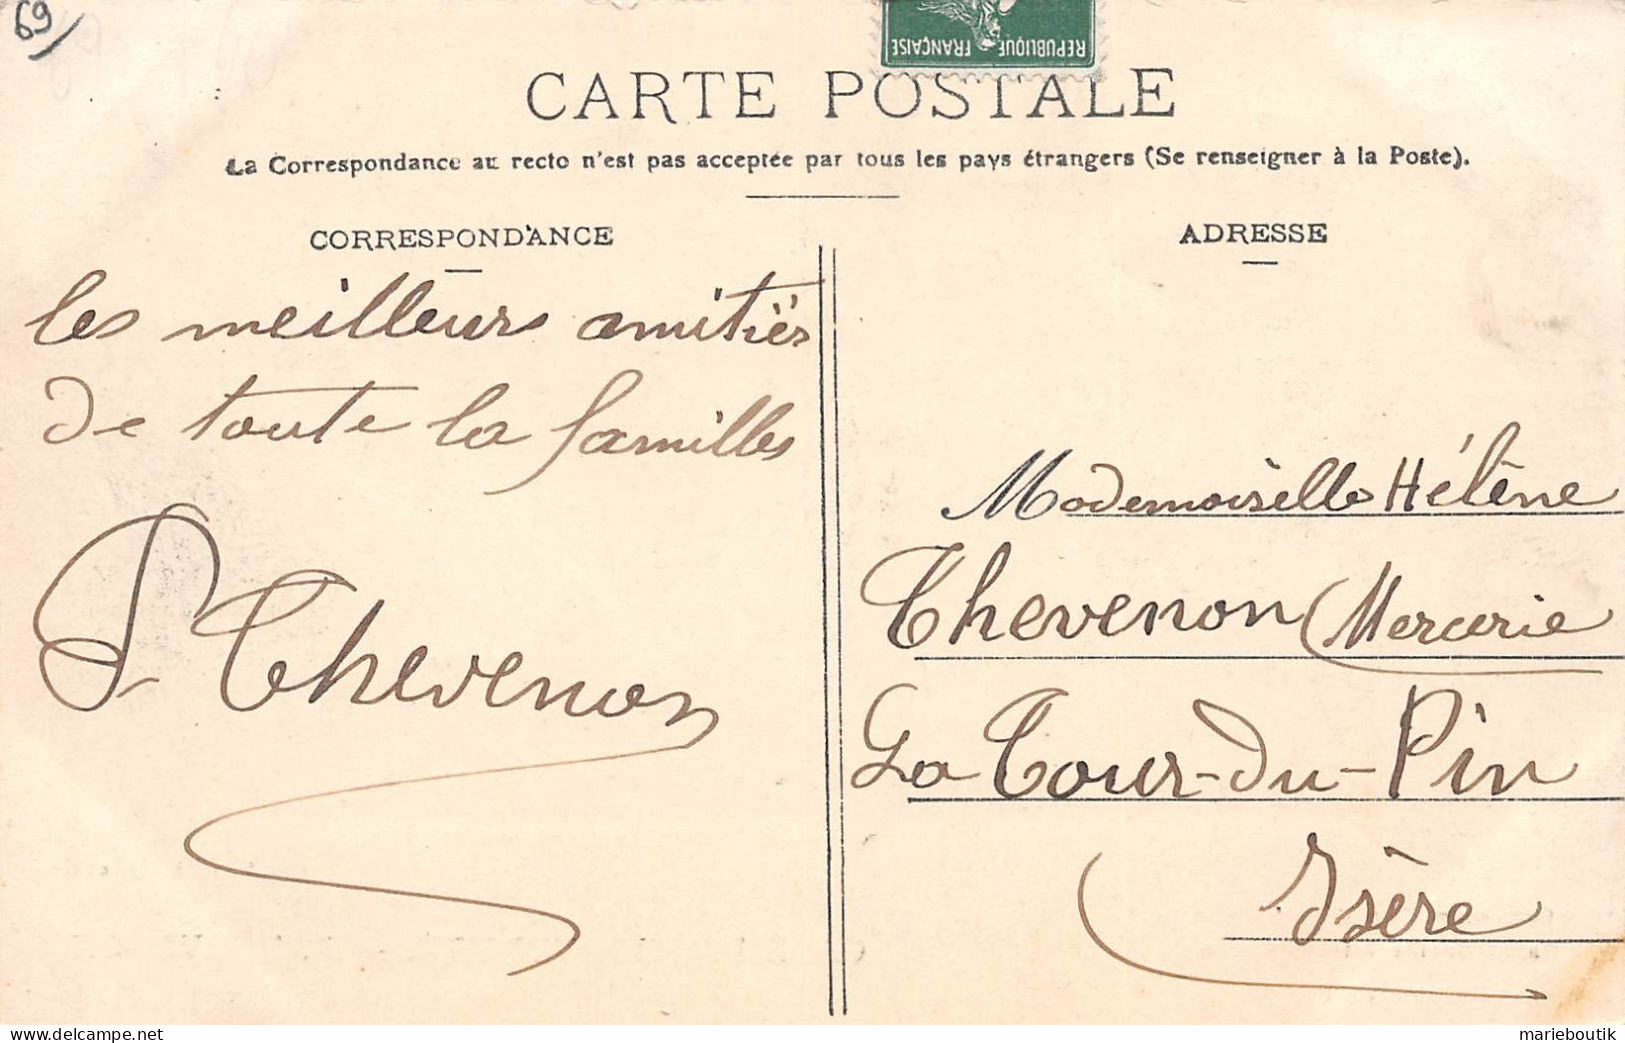 69
REPUBLIQUE FRANÇAISE
CARTE POSTALE
La Correspondance au recto n'est pas acceptée par tous les pays étrangers (Se renseigner à la Poste).
CORRESPONDANCE
les meilleurs amitiés
de toute la familles
P. Thevenon
ADRESSE
Mademoiselle Hélène
Thevenon Mercerie
La Tour-du-Pin
Isère
Delcampe.net
marieboutik